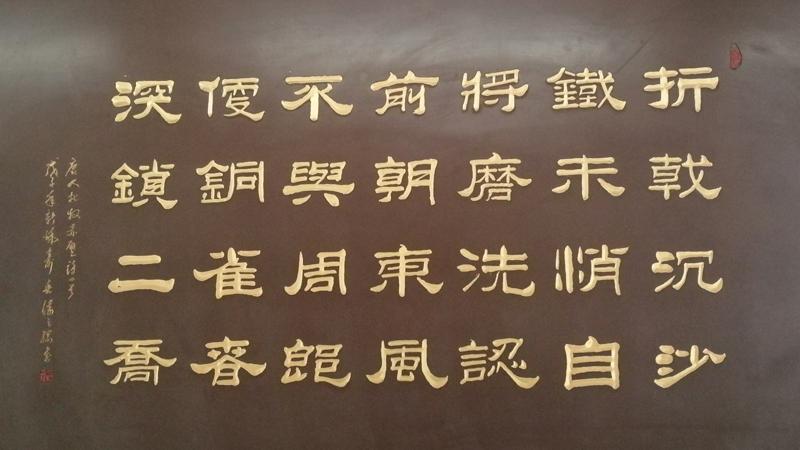 折戟沉沙
鐵未悄自
將磨洗認
前朝東風
不與周郎
便銅雀春
深鎖二喬
唐人杜牧赤壁詩一首
戊子年